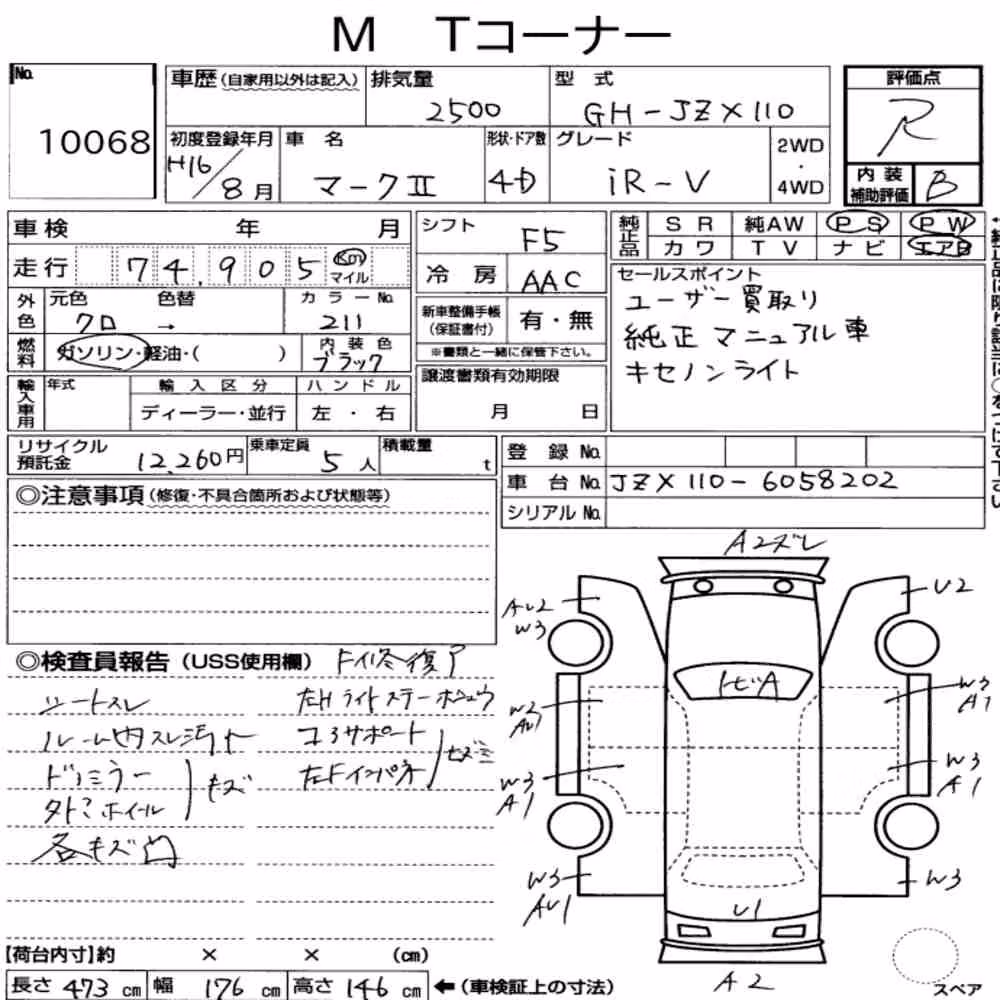 M Tコーナー
No.
10068
車歴 (自家用以外は記入)
排気量
2500
型 式
GH-JZX110
評価点
R
初度登録年月
H16/8月
車 名
マークⅡ
形状・ドア数
4D
グレード
iR-V
2WD
・
4WD
内 装
補助評価
B
車検 年 月
走行 74,905 Km
マイル
シフト
F5
冷 房
AAC
純正品
S R 純AW P S P W
カワ T V ナビ エアB
外色
元色 色替 カラーNo.
クロ → 211
燃料
ガソリン・軽油・( )
内 装 色
ブラック
新車整備手帳
(保証書付)
有・無
※書類と一緒に保管下さい。
セールスポイント
ユーザー買取り
純正マニュアル車
キセノンライト
輸入車用
年式
輸 入 区 分
ディーラー・並行
ハ ン ド ル
左 ・ 右
譲渡書類有効期限
月 日
リサイクル
預託金
12,260円
乗車定員
5人
積載量
t
登 録 No.
車 台 No. JZX110-6058202
シリアル No.
◎注意事項 (修復・不具合箇所および状態等)
◎検査員報告 (USS使用欄)
シートスレ
ルーム内スレ汚れ
ドアミラー
キズ
各キズ凹
コアサポート
A2ズレ
AU2
W3
U2
トビA
W2
AU1
W3
A1
W3
A1
W3
A1
W3
AU1
W3
U1
A2
【荷台内寸】約 × × (cm)
長さ 473 cm 幅 176 cm 高さ 146 cm ←(車検証上の寸法)
スペア